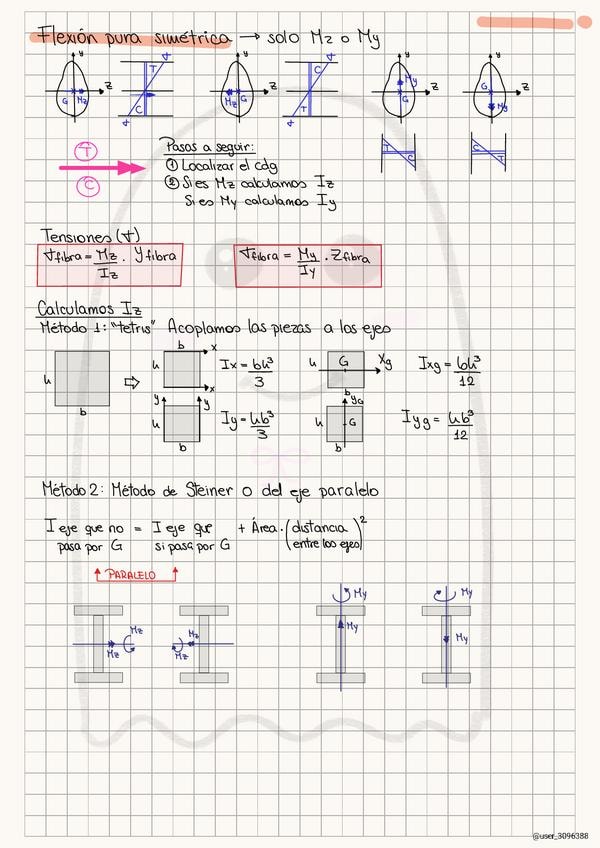 Flexión pura simétrica → solo Mz o My
y y y y
T C T C My G
G Mz z Mz G z G z G My z
C T T C C T
T
C
Pasos a seguir:
① Localizar el cdg
② Si es Mz calculamos Iz
Si es My calculamos Iy
Tensiones (σ)
σfibra = Mz/Iz · yfibra
σfibra = My/Iy · zfibra
Calculamos Iz
Método 1: "tetris" Acoplamos las piezas a los ejes
h b
b h x x Ix = bh³/3
h G Xg b Ixg = bh³/12
y y h b Iy = hb³/3
yG h G b Iyg = hb³/12
Método 2: Método de Steiner o del eje paralelo
I eje que no = I eje que + Área · (distancia)²
pasa por G si pasa por G (entre los ejes)
PARALELO
Mz Mz
Mz Mz
My My
My My
@user_3096388